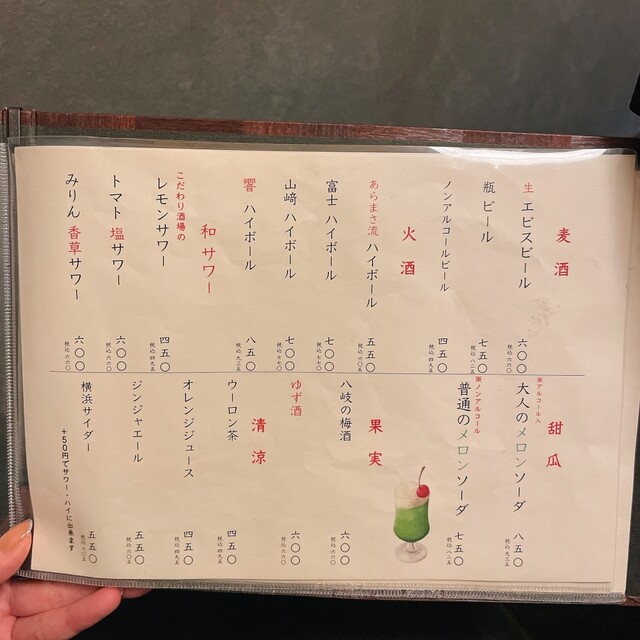 麦酒
生 エビスビール
六〇〇
税込 六六〇
瓶 ビール
七五〇
税込 八二五
ノンアルコールビール
四五〇
税込 四九五
火酒
あらまさ流 ハイボール
五五〇
税込 六〇五
富士 ハイボール
七〇〇
税込 七七〇
山﨑 ハイボール
七〇〇
税込 七七〇
響 ハイボール
八五〇
税込 九三五
和サワー
こだわり酒場の
レモンサワー
四五〇
税込 四九五
トマト 塩サワー
六〇〇
税込 六六〇
みりん 香草サワー
六〇〇
税込 六六〇
甜瓜
※アルコール入
大人のメロンソーダ
八五〇
税込 九三五
※ノンアルコール
普通のメロンソーダ
七五〇
税込 八二五
果実
八岐の梅酒
六〇〇
税込 六六〇
ゆず酒
六〇〇
税込 六六〇
清涼
ウーロン茶
四五〇
税込 四九五
オレンジジュース
四五〇
税込 四九五
ジンジャエール
五五〇
税込 六〇五
横浜サイダー
五五〇
税込 六〇五
+50円でサワー・ハイに出来ます